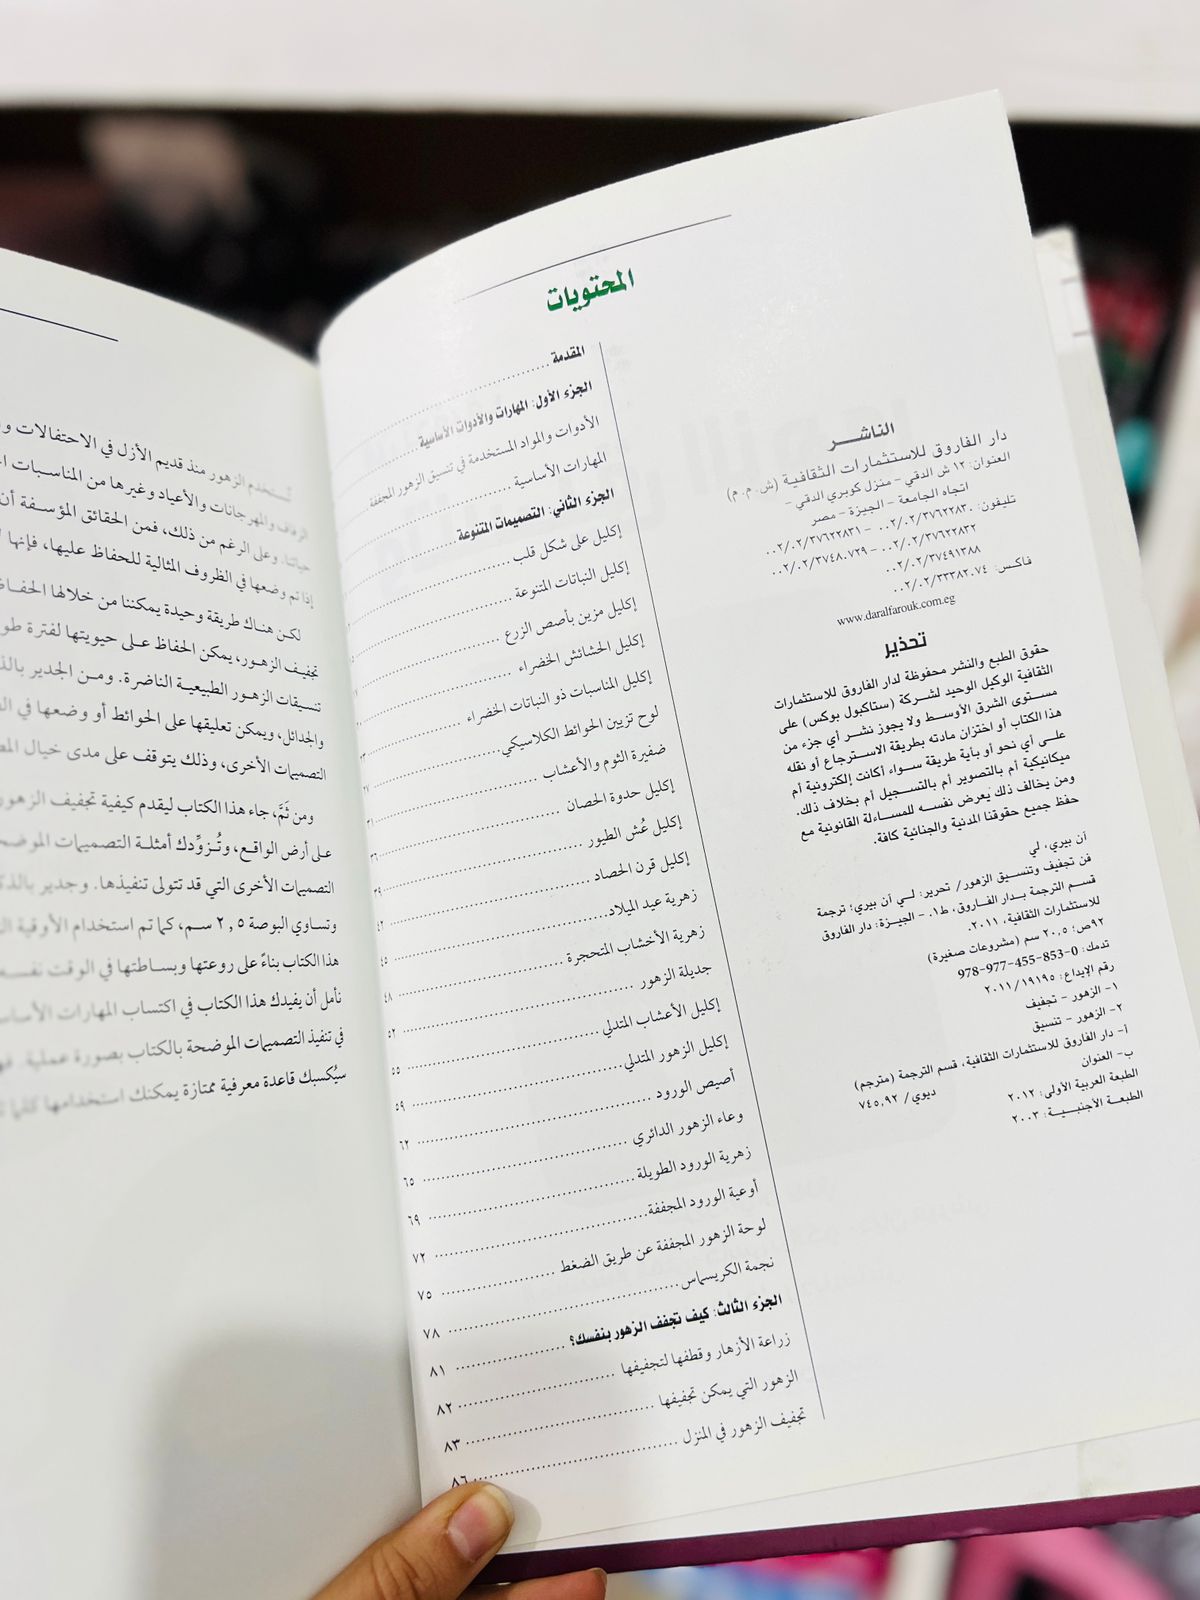 الناشــر
دار الفاروق للاستثمارات الثقافية (ش.م.م)
العنوان: ١٢ ش الدقي - منزل كوبري الدقي -
اتجاه الجامعة - الجيزة - مصر
تليفون: ٠٠٢/٠٢/٣٧٦٢٢٨٣٠ - ٠٠٢/٠٢/٣٧٦٢٢٨٣١
٠٠٢/٠٢/٣٧٦٢٢٨٣٢ - ٠٠٢/٠٢/٣٧٤٨٠٧٢٩
٠٠٢/٠٢/٣٧٤٩١٣٨٨
فاكس: ٠٠٢/٠٢/٣٣٣٨٢٠٧٤
www.daralfarouk.com.eg
تحذير
حقوق الطبع والنشر محفوظة لدار الفاروق للاستثمارات
الثقافية الوكيل الوحيد لشركة (ستاكبول بوكس) على
مستوى الشرق الأوسط ولا يجوز نشر أي جزء من
هذا الكتاب أو اختزان مادته بطريقة الاسترجاع أو نقله
على أي نحو أو بأية طريقة سواء أكانت إلكترونية أم
ميكانيكية أم بالتصوير أم بالتسجيل أم بخلاف ذلك.
ومن يخالف ذلك يعرض نفسه للمساءلة القانونية مع
حفظ جميع حقوقنا المدنية والجنائية كافة.
آن بيري، لي
فن تجفيف وتنسيق الزهور/ تحرير: لي آن بيري؛ ترجمة
قسم الترجمة بدار الفاروق. ط١. - الجيزة: دار الفاروق
للاستثمارات الثقافية، ٢٠١١.
٩٢ص؛ ٢٠,٥ سم (مشروعات صغيرة)
تدمك: 0-853-455-977-978
رقم الإيداع: ٢٠١١/١٩١٩٥
١- الزهور - تجفيف
٢- الزهور - تنسيق
أ- دار الفاروق للاستثمارات الثقافية، قسم الترجمة (مترجم)
ب- العنوان
ديوي/ ٧٤٥,٩٢
الطبعة العربية الأولى: ٢٠١٢
الطبعة الأجنبية: ٢٠٠٣
المحتويات
المقدمة
الجزء الأول: المهارات والأدوات الأساسية
الأدوات والمواد المستخدمة في تنسيق الزهور المجففة
المهارات الأساسية
الجزء الثاني: التصميمات المتنوعة
إكليل على شكل قلب
إكليل النباتات المتنوعة
إكليل مزين بأصص الزرع
إكليل الحشائش الخضراء
إكليل المناسبات ذو النباتات الخضراء
لوح تزيين الحوائط الكلاسيكي
ضفيرة الثوم والأعشاب
إكليل حدوة الحصان ٣٦
إكليل عُش الطيور ٣٩
إكليل قرن الحصاد ٤٢
زهرية عيد الميلاد ٤٥
زهرية الأخشاب المتحجرة ٤٨
جديلة الزهور ٥٢
إكليل الأعشاب المتدلي ٥٥
إكليل الزهور المتدلي ٥٩
أصيص الورود ٦٢
وعاء الزهور الدائري ٦٥
زهرية الورود الطويلة ٦٩
أوعية الورود المجففة ٧٢
لوحة الزهور المجففة عن طريق الضغط ٧٥
نجمة الكريسماس ٧٨
الجزء الثالث: كيف تجفف الزهور بنفسك؟ ٨١
زراعة الأزهار وقطفها لتجفيفها ٨٢
الزهور التي يمكن تجفيفها ٨٣
تجفيف الزهور في المنزل ٨٦
تُستخدم الزهور منذ قديم الأزل في الاحتفالات
الزفاف والمهرجانات والأعياد وغيرها من المناسبات
حياتنا. وعلى الرغم من ذلك، فمن الحقائق المؤسفة أن
إذا تم وضعها في الظروف المثالية للحفاظ عليها، فإنها
لكن هناك طريقة وحيدة يمكننا من خلالها
تجفيف الزهور، يمكن الحفاظ على حيويتها لفترة
تنسيقات الزهور الطبيعية الناضرة. ومن الجدير
والجدائل، ويمكن تعليقها على الحوائط أو وضعها في
التصميمات الأخرى، وذلك يتوقف على مدى خيال
ومن ثَمَّ، جاء هذا الكتاب ليقدم كيفية تجفيف
على أرض الواقع، وتُزوِّدك أمثلة التصميمات
التصميمات الأخرى التي قد تتولى تنفيذها. وجدير
وتساوي البوصة ٢,٥ سم، كما تم استخدام الأوقية
هذا الكتاب بناءً على روعتها وبساطتها في الوقت نفسه
نأمل أن يفيدك هذا الكتاب في اكتساب المهارات
في تنفيذ التصميمات الموضحة بالكتاب بصورة عملية.
سيُكسبك قاعدة معرفية ممتازة يمكنك استخدامها